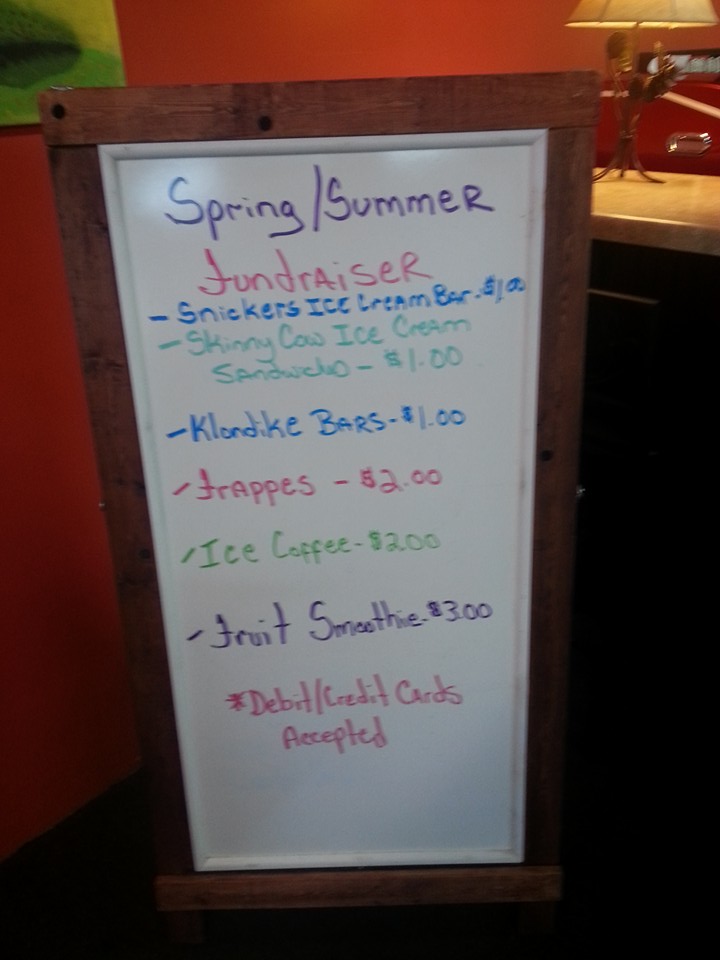 Spring/Summer
Fundraiser
- Snickers Ice Cream Bar - $1.00
- Skinny Cow Ice Cream
- $1.00
- Klondike Bars - $1.00
- Frappes - $2.00
- Ice Coffee - $2.00
- Fruit Smoothie - $3.00
*Debit/Credit Cards
Accepted